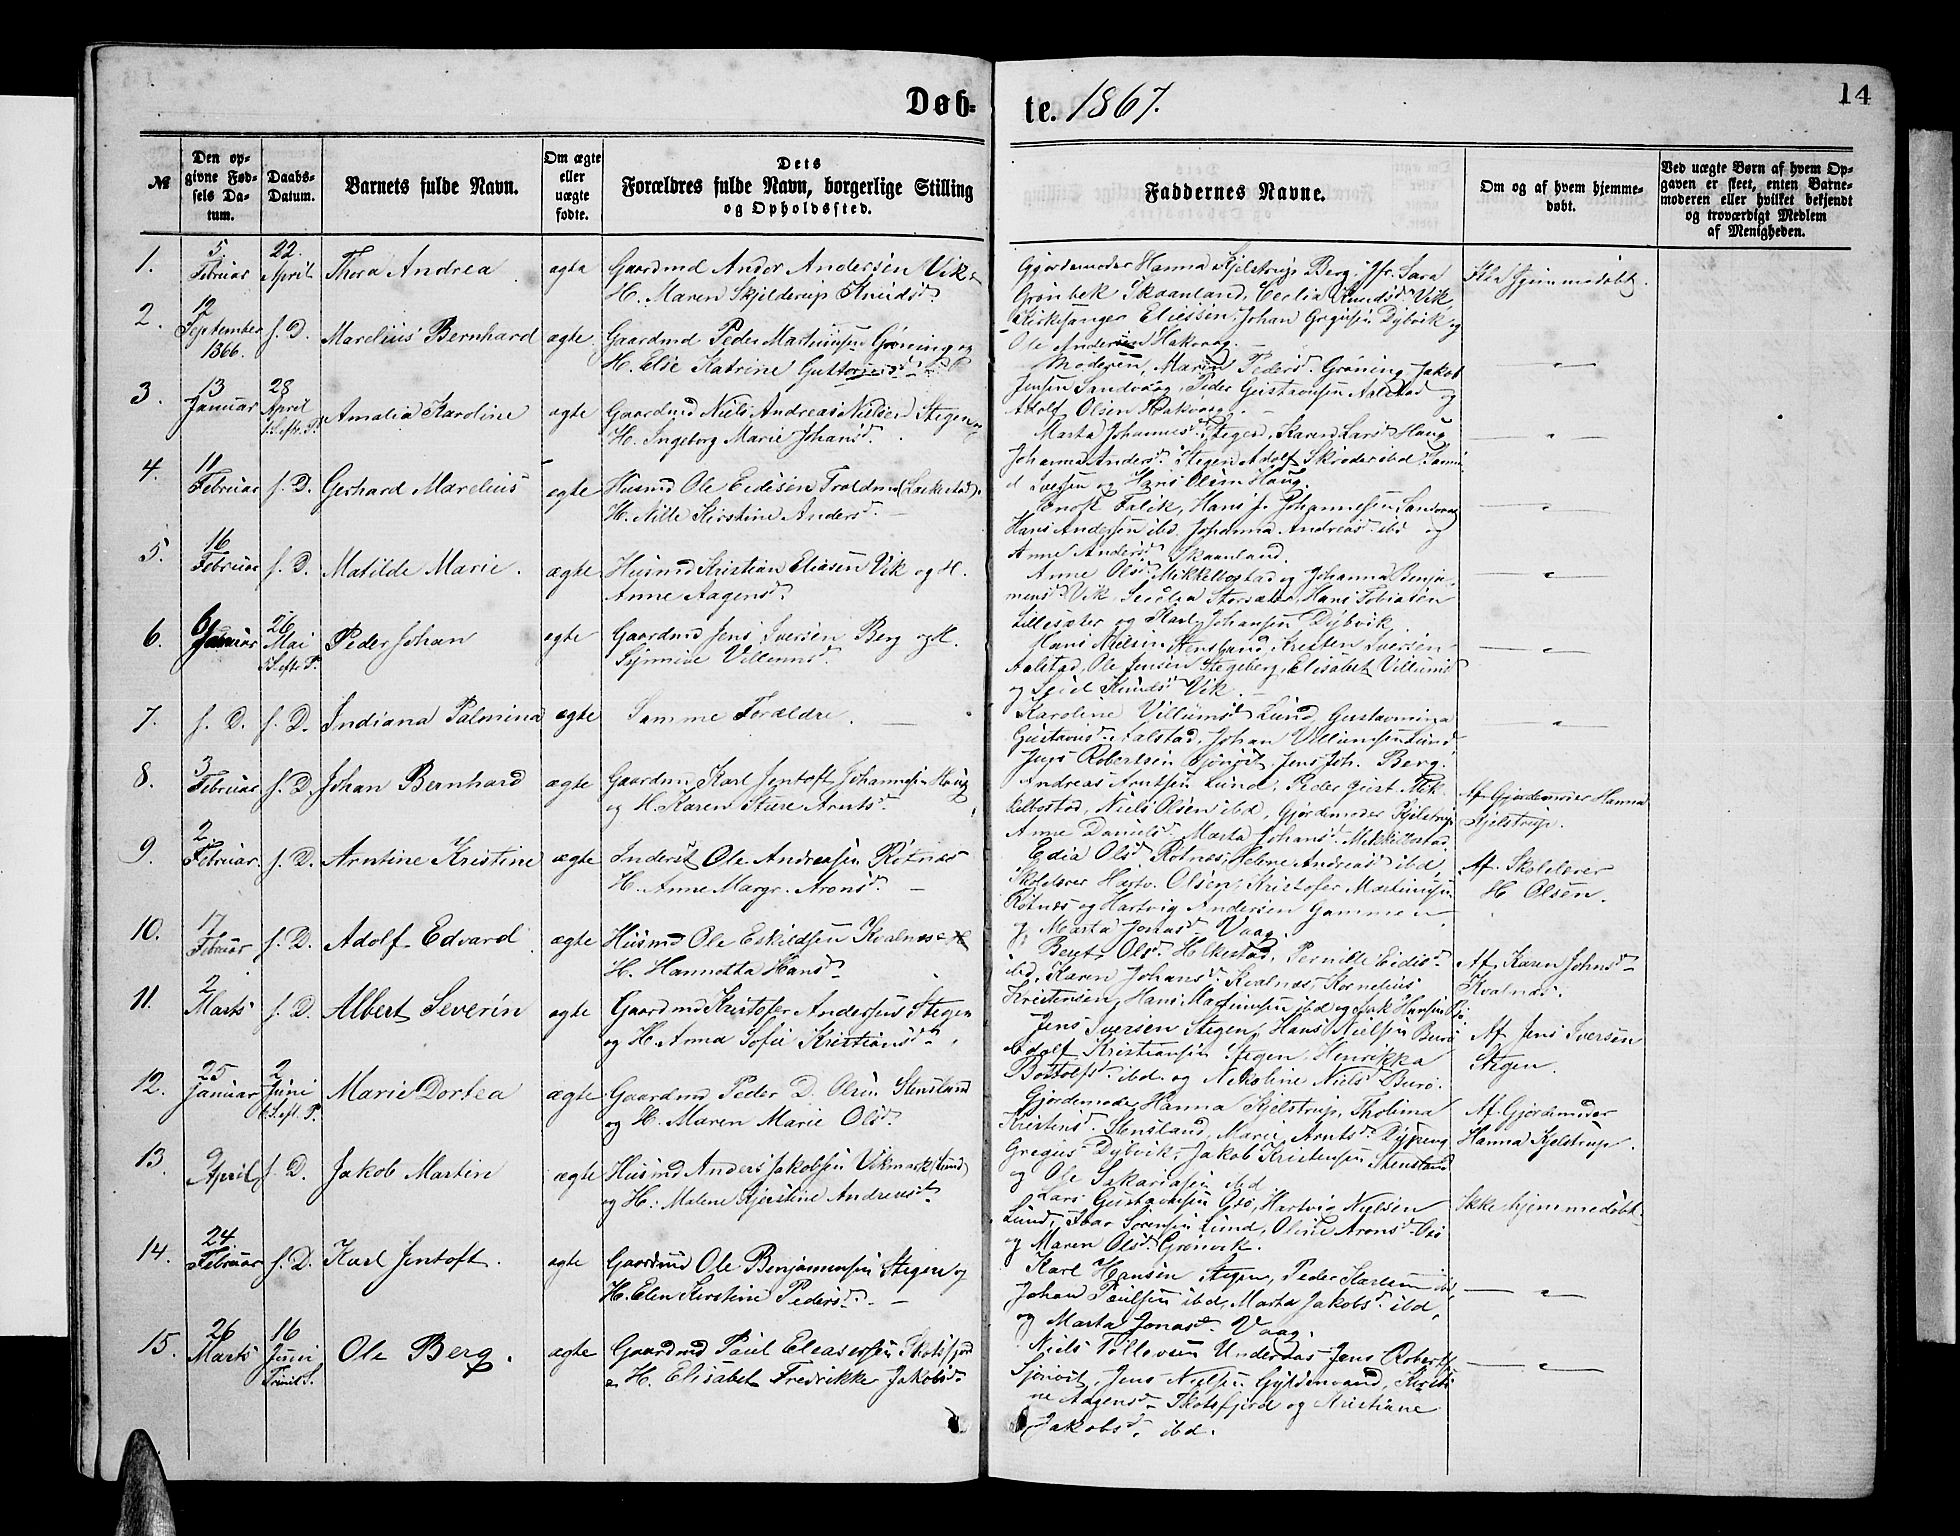 Døb-
te. 1867.
14
№
Den op-
givne Fød-
sels Da-
tum.
Daabs-
Datum.
Barnets fulde Navn.
Om ægte
eller
uægte
fødte.
Dets
Forældres fulde Navn, borgerlige Stilling
og Opholdssted.
Faddernes Navne.
Om og af hvem hjemme-
døbt.
Ved uægte Børn af hvem Op-
gaven er skeet, enten Barne-
moderen eller hvilket bekjendt
og troværdigt Medlem
af Menigheden.
1.
5.
Februar
22.
April.
Thora Andrea
ægte
Gaardmd Andor Andersen Vik
H. Maren Skjelderup Knudsd.
Gjordemoder Hanna Kjelstrup Berg, Jfr. Sara
Grønbek Skaanland, Cecilia Knudsd. Vik,
Kirkesanger Eliassen, Johan Gregusen Dybvik og
Ole Andersen Hakvaag.
Ikke hjemmedøbt.
2.
12
September
1866.
s. D.
Marelius Bernhard
ægte
Gaardmd Peder Martinusen Grøning og
H. Else Katrine Guttormsd.
Moderen, Maren Pedersd. Grøning, Jakob
Jensen Sandvaag, Peder Gustavsen Aalstad og
Adolf Olsen Hakvaag.
3.
13
Januar
28
April
1. S. eft. P.
Amalia Karoline
ægte
Gaardmd Niels Andreas Nielsen Stegen og
H. Ingeborg Marie Johansd.
Marta Johannesd. Stegen, Karen Larsd. Haug
Johanna Andersd. Stegen, Adolf Skrøder ibd
Iversen og Hans Olsen Haug.
4.
11
Februar
s. D.
Gerhard Marelius
ægte
Husmd Ole Edisen
H. Nille Kirstine Andersd.
Enost Falik, Hans J. Johannesen Sandvaag
Hans Andersen ibd. Johanna Andreasd. ibd og
Anne Andersd. Skaanland.
5.
16
Februar
s. D.
Matilde Marie.
ægte
Husmd Kristian Eliasen Vik og H.
Anne Aagensd.
Anne Olsd. Mikkelbostad og Johanna Benja-
mensd. Vik, Hans Tobiasen
Lillesæter og Karl Johansen Dybvik.
6.
6
Januar
26
Mai
5 S. eft. P.
Peder Johan
ægte
Gaardmd Jens Iversen Berg og H.
Synnive Villumsd.
Hans Nielsen Stensland, Kristen Iversen
Aalstad, Ole Jensen Stegeberg, Elisabet Villumsd
og Knudsd Vik.
7.
s. D.
s. D.
Indiana Palmina
ægte
Samme Forældre.
Karoline Villumsd Lund, Gustavmina
Gustavsd. Aalstad, Johan Villumsen Lund
Jens Robertsen Sjønvit, Jens Joh. Berg.
8.
3
Februar
s. D.
Johan Bernhard
ægte
Gaardmd Karl Jentoft Johannesen Haug
og H. Karen Sture Arntsd.
Andreas Arntsen Lund, Peder Gust. Mik-
kelbostad, Niels Olsen ibd, Gjordemoder Kjelstrup
Anne Danielsd. Marta Johansd. Mikkelbostad.
Af Gjordemoder Hanna
Kjelstrup.
9.
2.
Februar
s. D.
Arntine Kristine
ægte
Inderst Ole Andreasen Rotnæs
H. Anne Margr. Aronsd.
Edia Olsd. Rotnæs, Helene Andreasd ibd,
Skolelærer Hartv. Olsen, Kristofer Martinusen
Rotnæs og Hartvig Andersen Gammen
og Marta Jonasd. Vaag.
Af. Skolelærer
H Olsen.
10.
17.
Februar
s. D.
Adolf Edvard
ægte
Husmd Ole Eskildsen Kvalnæs
H. Hannetta Hansd.
Berit Olsd. Helkestad, Pernille Eidisd.
ibd, Karen Johansd. Kvalnæs, Kornelius
Kristensen, Hans Martinusen ibd og Isak Hansen
Af. Karen Johnsd
Kvalnæs.
11.
2
Marts
s. D.
Albert Severin
ægte
Gaardmd Kristofer Andersen Stegen
og H. Anna Sofie Kristiansd.
Jens Iversen Stegen, Hans Nielsen Burø
Adolf Kristiansen Stegen, Henrikka
Bostolfsd. ibd. og Nikoline Nielsd Burø.
Af Jens Iversen
Stegen.
12.
25
Januar
2
Juni
6 S. eft. P.
Marie Dortea
ægte
Gaardmd Peder D. Olsen Stensland
og H. Maren Marie Olsd.
Gjordemoder Hanna Kjelstrup, Tholima
Kristensd. Stensland, Marie Arntsd.
Gregus Dybvik, Jakob Kristensen Stensland
og Ole Sakariasen ibd
Af. Gjordemoder
Hanna Kjelstrup.
13.
9
April
s. D.
Jakob Martin
ægte
Husmd Anders Jakobsen Vikmark (Lund)
og H. Malene Kjerstine Andreasd.
Lars Gustavsen Osø, Hartvig Nielsen
Lund, Ivar Sørensen Lund, Oline Aronsd. Osø
og Maren Olsd. Grønvik.
Ikke hjemmedøbt
14.
24.
Februar
s. D.
Karl Jentoft.
ægte
Gaardmd Ole Benjaminsen Stegen og
H. Elen Kirstine Pedersd.
Karl Hansen Stegen, Peder Karlsen ibd,
Johan Paulsen ibd, Marta Jakobsd. ibd,
og Marta Jonasd. Vaag.
15.
26
Marts
16
Juni
Trinit. S.
Ole Berg.
ægte
Gaardmd Paul Eleasersen Skotsfjord
& H. Elisabet Fredrikke Jakobsd.
Niels Tollevsen Underaas, Jens Roberts.
Sjønvit, Jens Nielsen Gyldenvand, Kirsti-
ne Aagensd. Skotsfjord og Kristiane
Jakobsd. ibd.